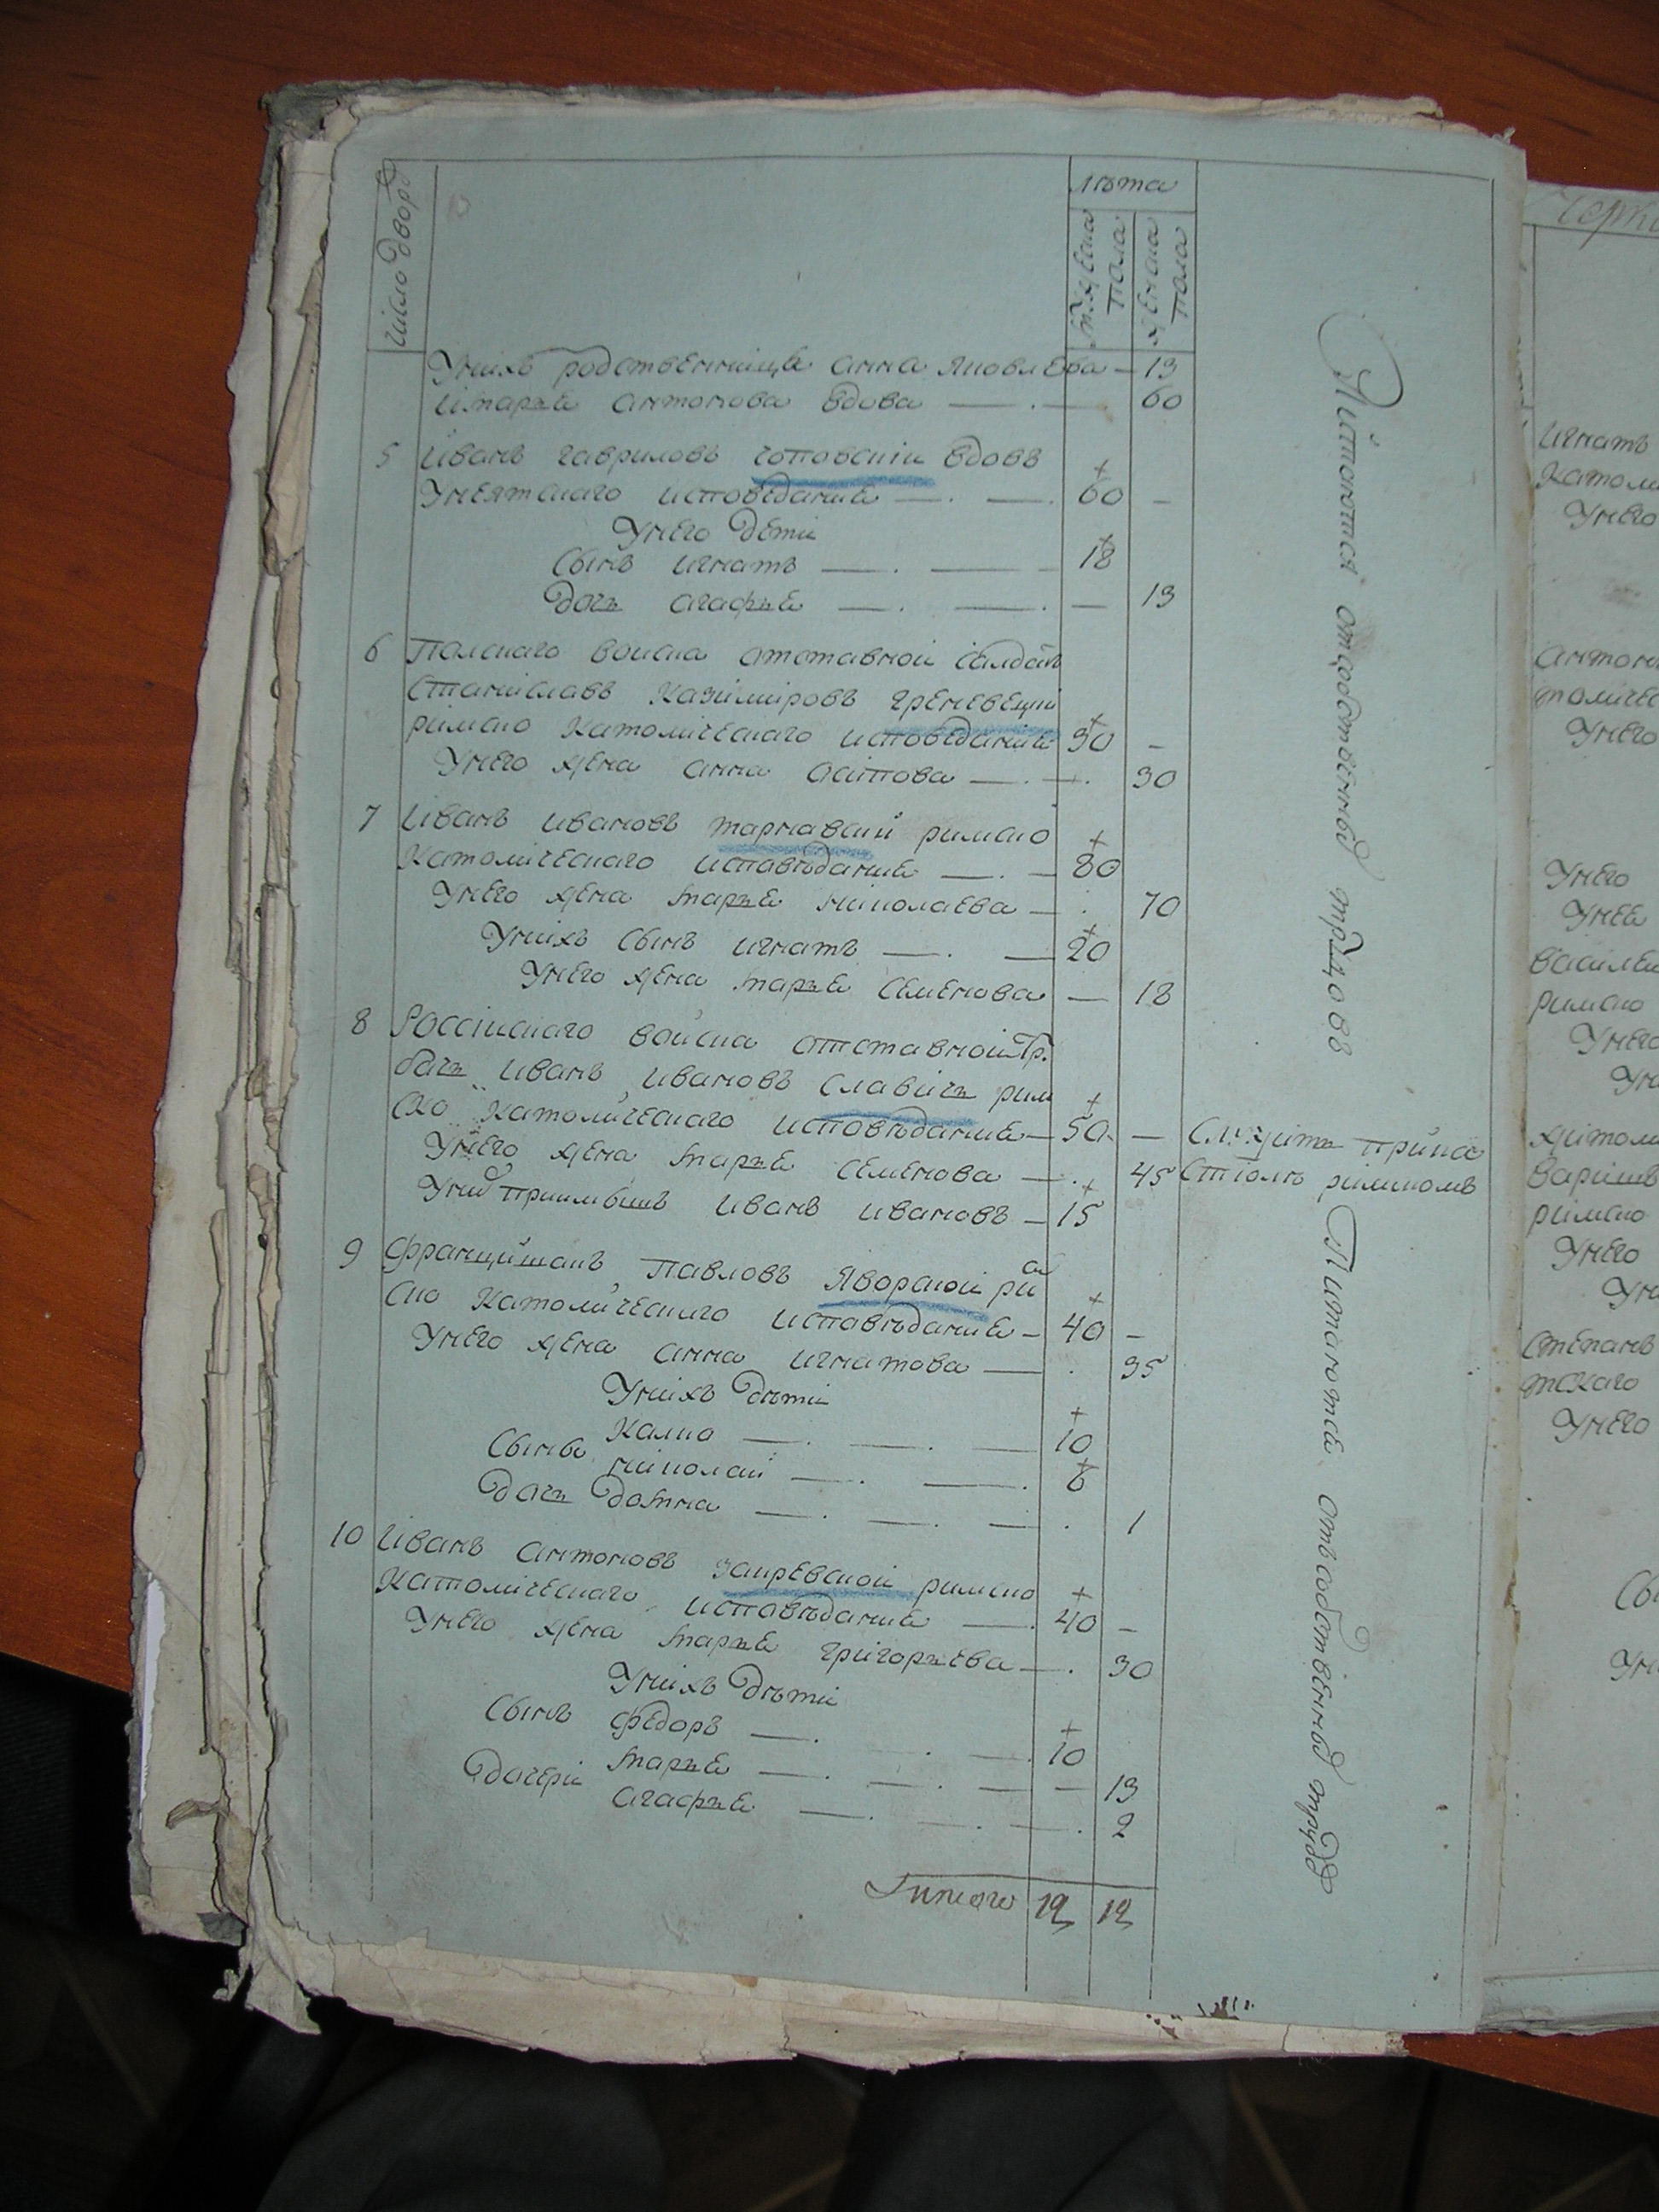 число дворо
лѣта
мужеска пола
женска пола
Унихъ родственница анна яковлева — 13
имарье антонова вдова — 60
5 Иванъ гавриловъ вдовъ
Унеятскаго исповедание — 60 —
Унего дети
Сынъ игнатъ — 18
дочь агафье — 13
6 Полскаго воиска отставной салдатъ
Станиславъ Казимировъ
римско Католическаго исповедание 30 —
Унего жена анна осипова — 30
7 Иванъ ивановъ тарнавский римско
Католическаго исповѣдание — 80
Унего жена марье николаева — 70
Унихъ сынъ игнатъ — 20
Унего жена марье семенова — 18
8 Россискаго воиска отставной тр.
бачь иванъ ивановъ славичь рим
ско католическаго исповѣдание — 50 — Служить прико
Унего жена марье семенова — 45
Иванъ ивановъ — 15
9 францишакъ павловъ яворской рим
ско католическаго исповѣдание — 40 —
Унего жена анна игнатова — 35
Унихъ дѣти
Сыны — 10
николай — 8
дочь домна — 1
10 Иванъ антоновъ закревской римско
Католическаго исповѣдание — 40 —
Унего жена марье григорьева — 30
Унихъ дѣти
Сынъ федоръ — 10
дочери марье — 13
агафье — 2
Итого 12 12
Питаются отсобственныхъ трудовъ
Питаются отъсобственныхъ трудовъ
игнатъ
Католи
Унего
антонъ
толичес
Унего
Унего
Унее
василей
римско
Унего
римско
Унего
степанъ
Унего